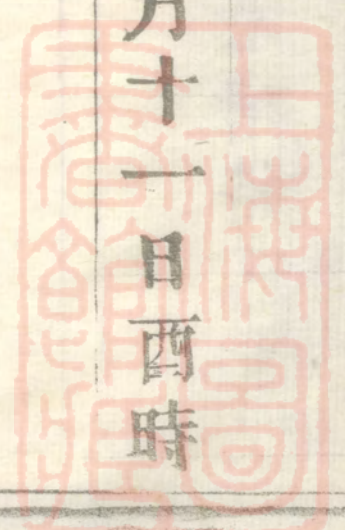 月十一日酉時
上海圖書館藏